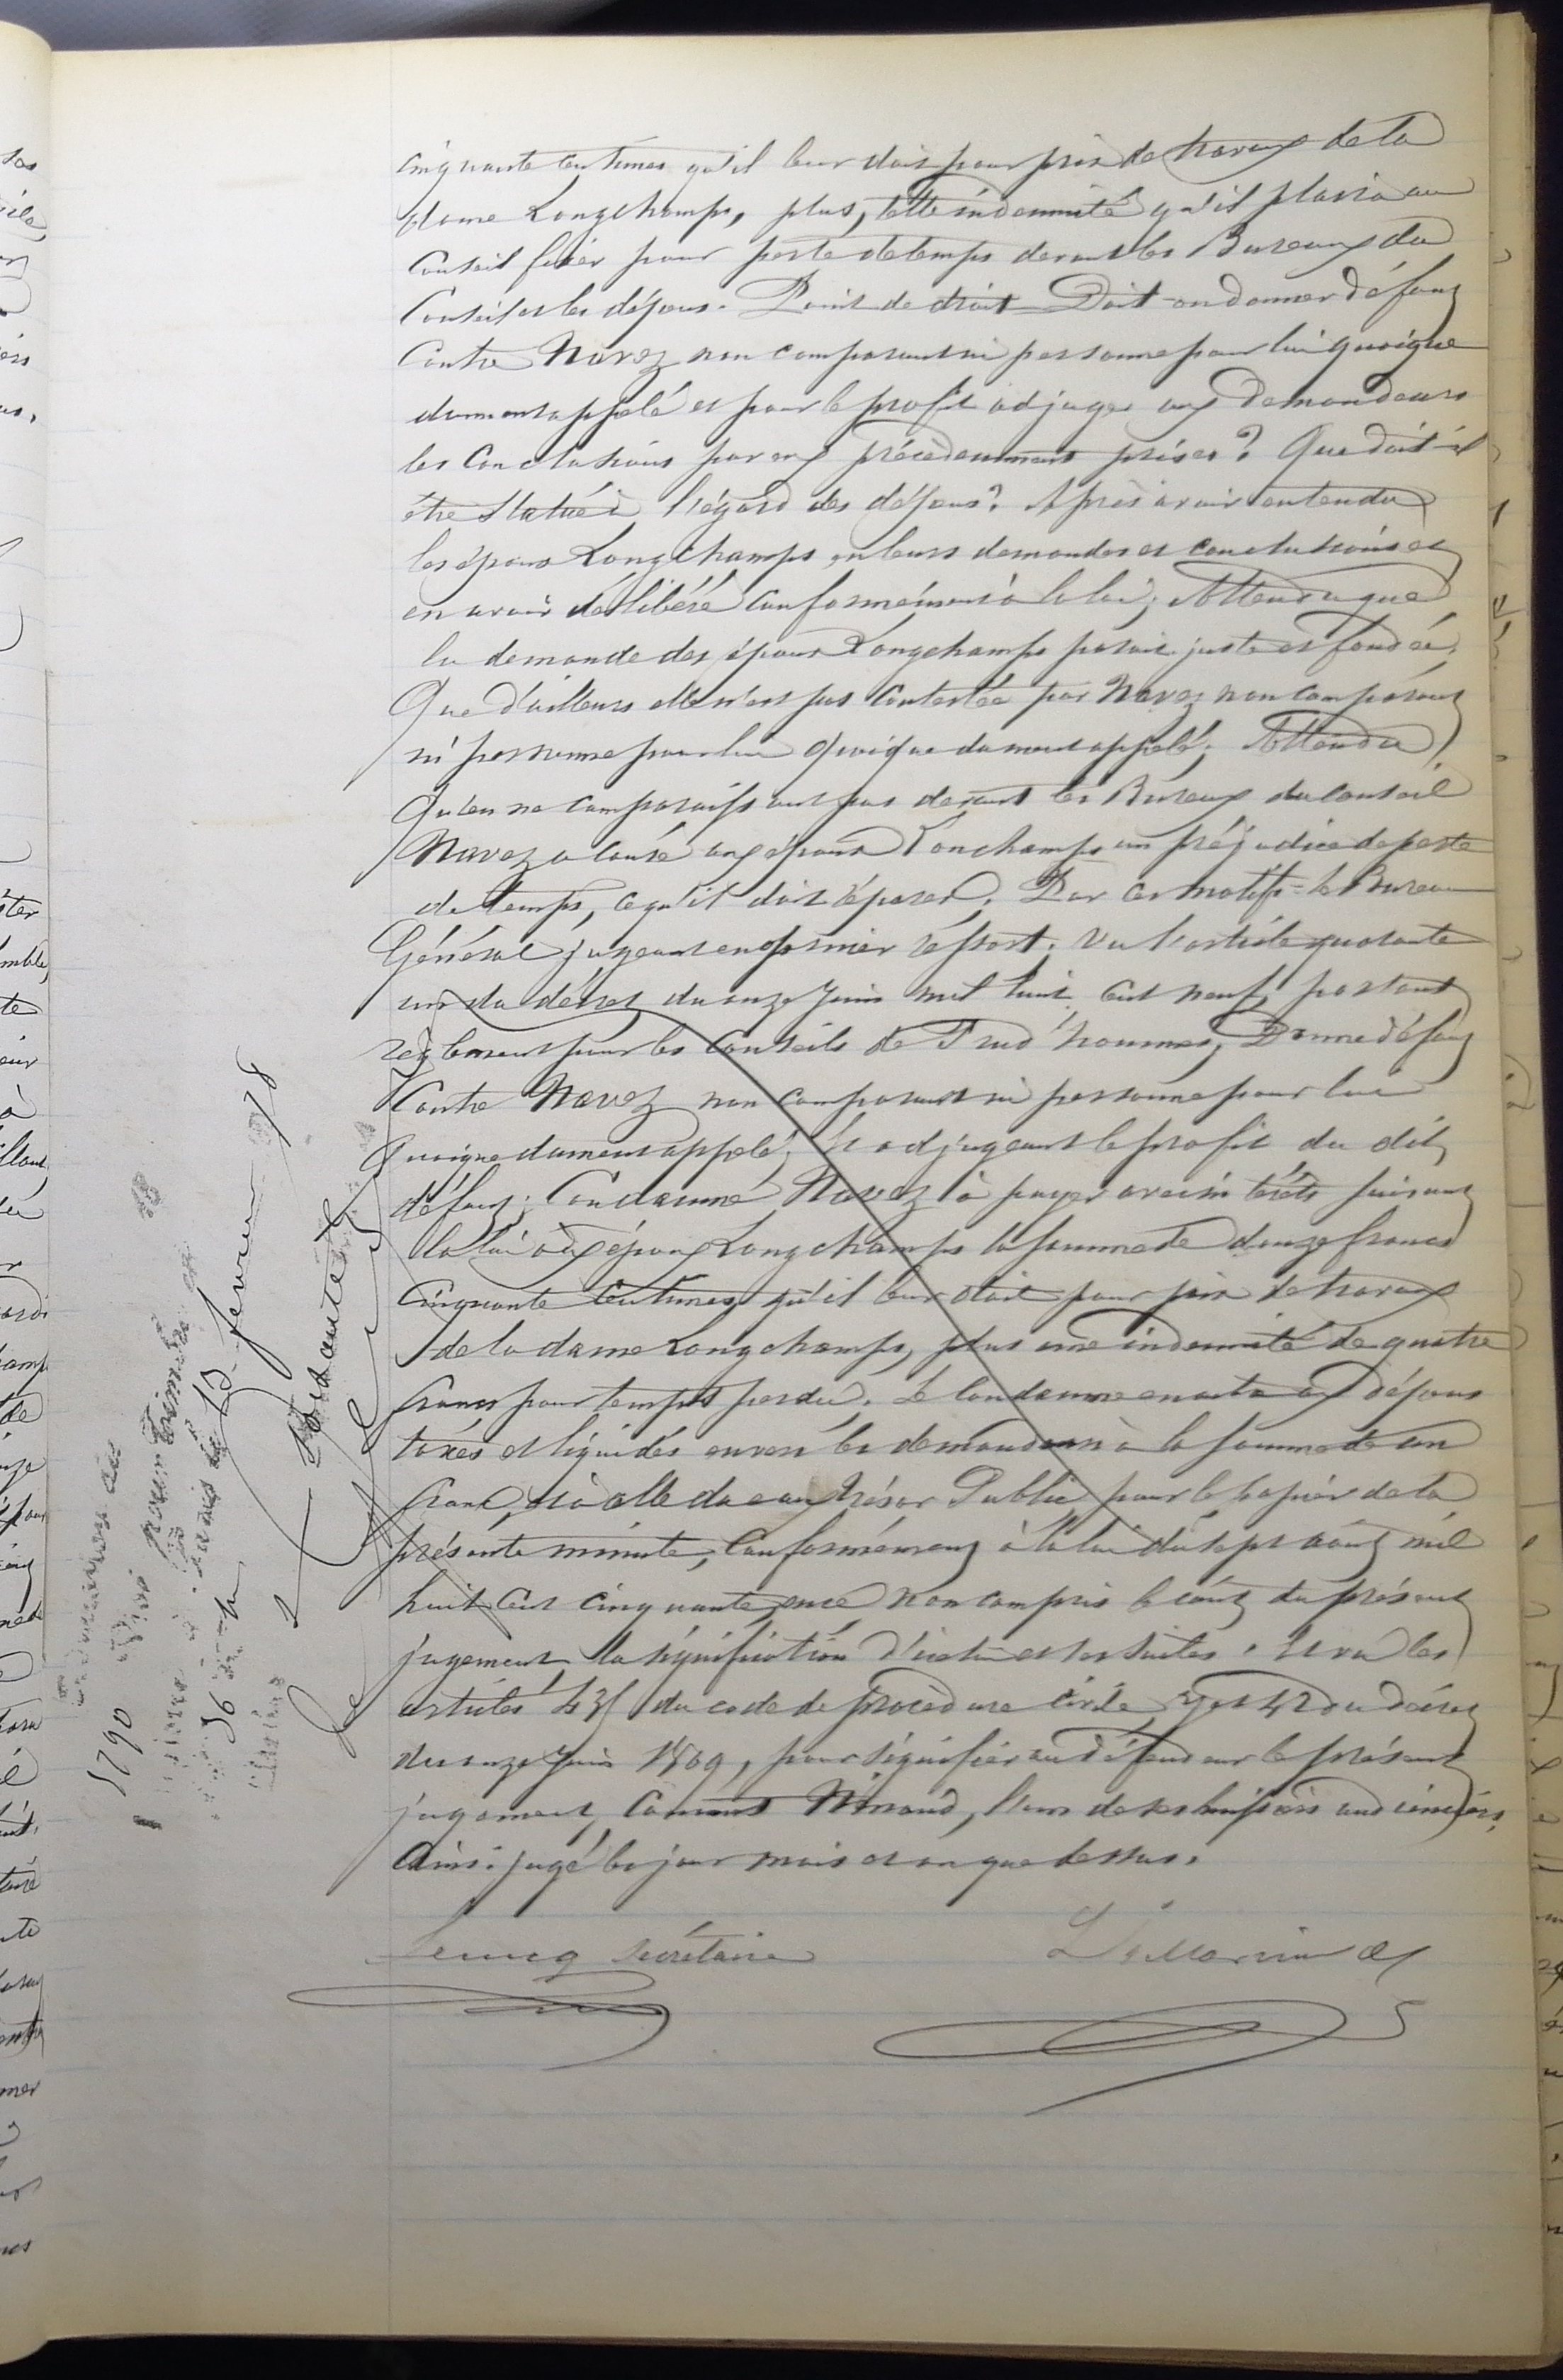 cinquante centimes qu'il leur doit pour prix de travaux de la
dame Longchamps, plus, telle indemnité qu'il plaira au
Conseil fixer pour perte de temps devant les Bureaux du
Conseil et les dépens. Point de droit Doit-on donner défaut
Contre Navez non comparant ni personne pour lui quoique
dument appelé et pour le profit adjuger aux Demandeurs
les Conclusions par eux précédemment prises? Que doit-il
être Statué à l'égard des dépens? Après avoir entendu
les époux Longchamps en leurs demandes et conclusions et
en avoir délibéré Conformément à la loi; Attendu que
la demande des époux Longchamps parait juste et fondée;
Que d'ailleurs elle n'est pas Contestée par Navez non comparant
ni personne pour lui quoique dument appelé; Attendu
Qu'en ne comparaissant pas devant les Bureaux du Conseil
Navez a causé aux époux Lonchamps un préjudice de perte
de temps, ce qu'il doit réparer; Par ces motifs - Le Bureau
Général jugeant en premier ressort; Vu l'article quarante
un du décret du onze Juin mil huit cent neuf, portant
règlement pour les Conseils de Prud'hommes; Donne défaut
Contre Navez non comparant ni personne pour lui
Quoique dument appelé; Et adjugeant le profit du dit
défaut; Condamne Navez à payer avec intérêts suivant
la loi aux époux Longchamps la somme de douze francs
Cinquante Centimes qu'il leur doit pour prix de travaux
de la dame Longchamps, plus une indemnité de quatre
francs pour temps perdu. Le Condamne en outre aux dépens
taxés et liquidés envers les demandeurs à la somme de un
franc, et à celle due au Trésor Public pour le papier de la
présente minute, Conformément à la loi du sept août mil
huit cent cinquante, ence non compris le coût du présent
jugement, la signification d'icelui et ses suites. Et vu les
articles 435 du code de procédure civile, 27 et 42 du décret
du onze Juin 1809, pour signifier au défendeur le présent
jugement, Commet Minaud, l'un de ses huissiers audienciers.
Ainsi jugé les jour mois et an que dessus.
Lecucq Secrétaire
1790
56
13 février 78